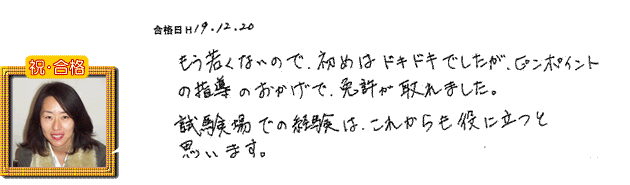 合格日H19.12.20
祝・合格
もう若くないので、初めはドキドキでしたが、ピンポイント
の指導のおかげで、免許が取れました。
試験場での経験は、これからも役に立つと
思います。